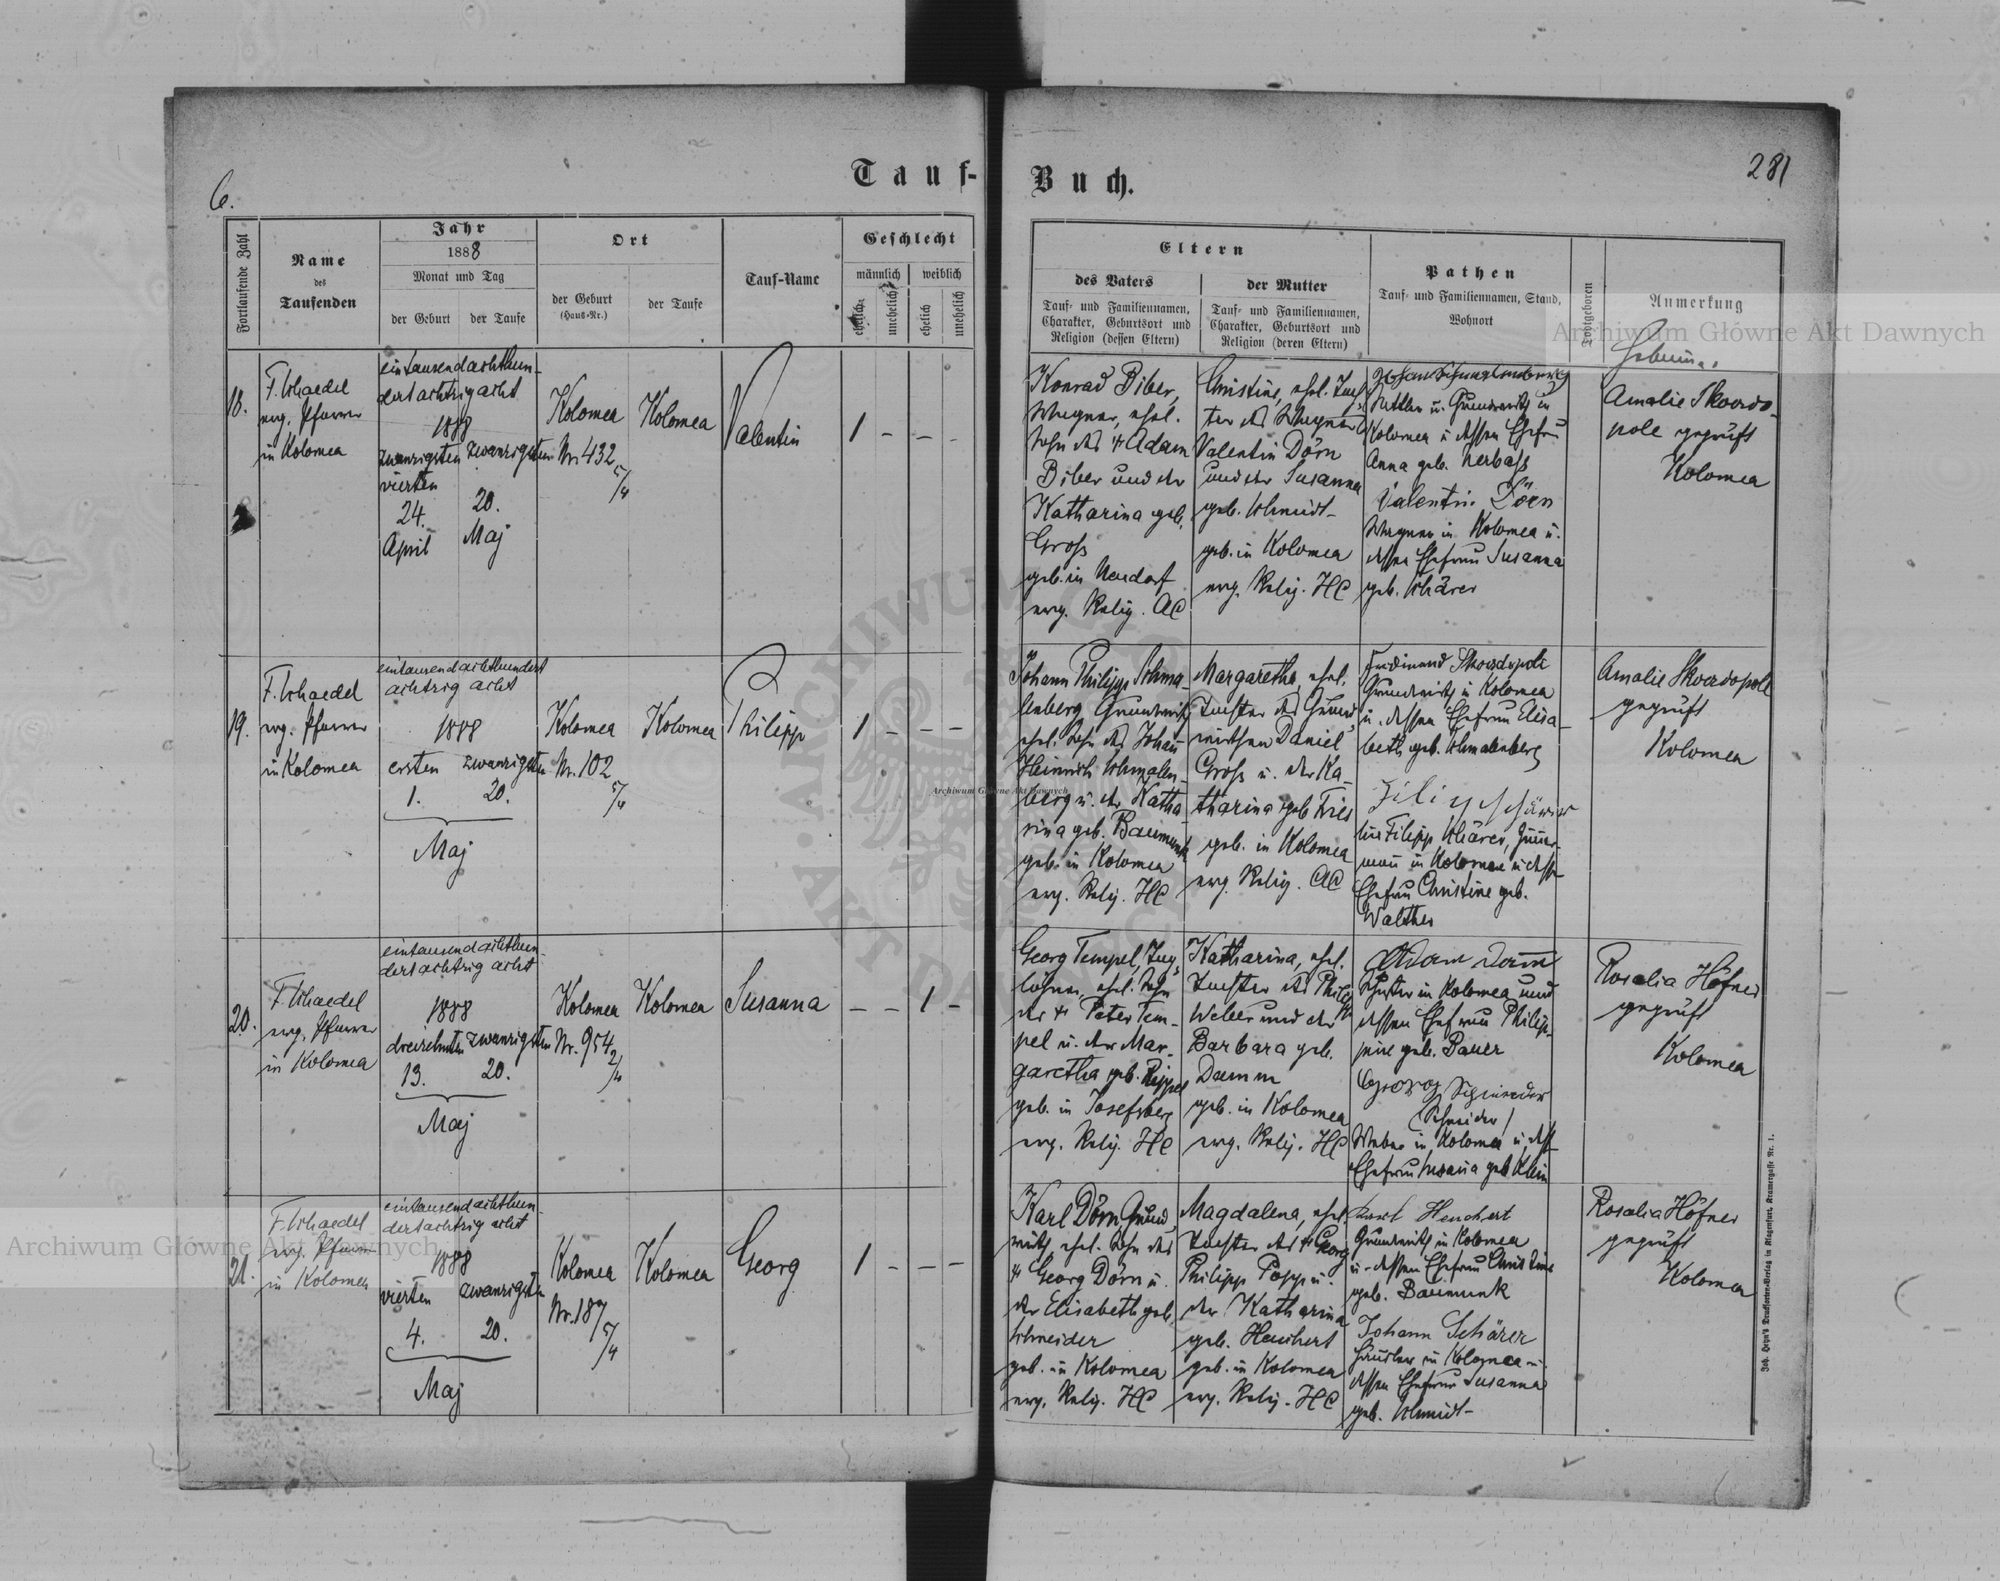 6.
Tauf-
Buch.
281
Fortlaufende Zahl
Name
des
Taufenden
Jahr
1888
Monat und Tag
der Geburt
der Taufe
Ort
der Geburt
(Haus-Nr.)
der Taufe
Tauf-Name
Geschlecht
männlich
weiblich
ehelich
unehelich
ehelich
unehelich
Eltern
des Vaters
Tauf- und Familiennamen,
Charakter, Geburtsort und
Religion (dessen Eltern)
der Mutter
Tauf- und Familiennamen,
Charakter, Geburtsort und
Religion (deren Eltern)
Pathen
Tauf- und Familiennamen, Stand,
Wohnort
Todtgeboren
Anmerkung
18.
F. Schaedel
evg. Pfarrer
in Kolomea
eintausendachthun-
dertachtzigacht
1888
zwanzigsten
vierten
24.
April
zwanzigsten
20.
Maj
Kolomea
Nr. 432
5/4
Kolomea
Valentin
1 - - -
Konrad Biber,
Wagner, ehel.
Sohn des † Adam
Biber und der
Katharina geb.
Groß
geb. in Neudorf
evg. Relig. AC
Christine, ehel. Toch-
ter des Wagners
Valentin Dörn
und der Susanna
geb. Schmidt
geb. in Kolomea
evg. Relig. HC
Sattler u. Grundwirth in
Kolomea u. dessen Ehefrau
Anna geb. Nerbaß
Valentin Dörn
Wagner in Kolomea u.
dessen Ehefrau Susanna
geb. Schärer
Amalie Skordo-
pole geprüft
Kolomea
19.
F. Schaedel
evg. Pfarrer
in Kolomea
eintausendachthundert
achtzig acht
1888
ersten zwanzigsten
1. 20.
Maj
Kolomea
Nr. 102
5/4
Kolomea
Philipp
1 - - -
Johann Philipp Schma-
lenberg Grundwirth,
ehel. Sohn des Johann
Heinrich Schmalen-
berg u. der Katha-
rina geb. Baumunk
geb. in Kolomea
evg. Relig. HC
Margaretha, ehel.
Tochter des Grund-
wirthen Daniel
Groß u. der Ka-
tharina geb. Fries
geb. in Kolomea
evg. Relig. AC
Ferdinand Skordopole
Grundwirth in Kolomea
u. dessen Ehefrau Elisa-
beth geb. Schmalenberg
Filipp Schärer, Zimmer-
mann in Kolomea u. dessen
Ehefrau Christine geb.
Walther
Amalie Skordopole
geprüft
Kolomea
20.
F. Schaedel
evg. Pfarrer
in Kolomea
eintausendachthun-
dertachtzig acht
1888
dreizehnten zwanzigsten
13. 20.
Maj
Kolomea
Nr. 954
2/4
Kolomea
Susanna
- - 1 -
Georg Tempel, Tag-
löhner, ehel. Sohn
des † Peter Tem-
pel u. der Mar-
garetha geb. Rippel
geb. in Josefsberg
evg. Relig. HC
Katharina, ehel.
Tochter des Philipp
Weber und der
Barbara geb.
Damm
geb. in Kolomea
evg. Relig. HC
Adam Damm
Schuster in Kolomea und
dessen Ehefrau Philip-
pine geb. Bauer
(Schneider)
Weber in Kolomea u. dess.
Ehefrau Susanna geb. Klein
Rosalia Höfner
geprüft
Kolomea
21.
F. Schaedel
evg. Pfarrer
in Kolomea
eintausendachthun-
dertachtzig acht
1888
vierten zwanzigsten
4. 20.
Maj
Kolomea
Nr. 187
5/4
Kolomea
Georg
1 - - -
Karl Dörn, Grund-
wirth, ehel. Sohn des
† Georg Dörn u.
der Elisabeth geb.
Schneider
geb. in Kolomea
evg. Relig. HC
Magdalena, ehel.
Tochter des † Georg
Philipp Popp u.
der Katharina
geb. Heuchert
geb. in Kolomea
evg. Relig. HC
Karl Heuchert
Grundwirth in Kolomea
u. dessen Ehefrau Christine
geb. Baumunk
Johann Schärer
Häusler in Kolomea u.
dessen Ehefrau Susanna
geb. Schmidt
Rosalia Höfner
geprüft
Kolomea
Archiwum Główne Akt Dawnych
Archiwum Główne Akt Dawnych
Archiwum Główne Akt Dawnych